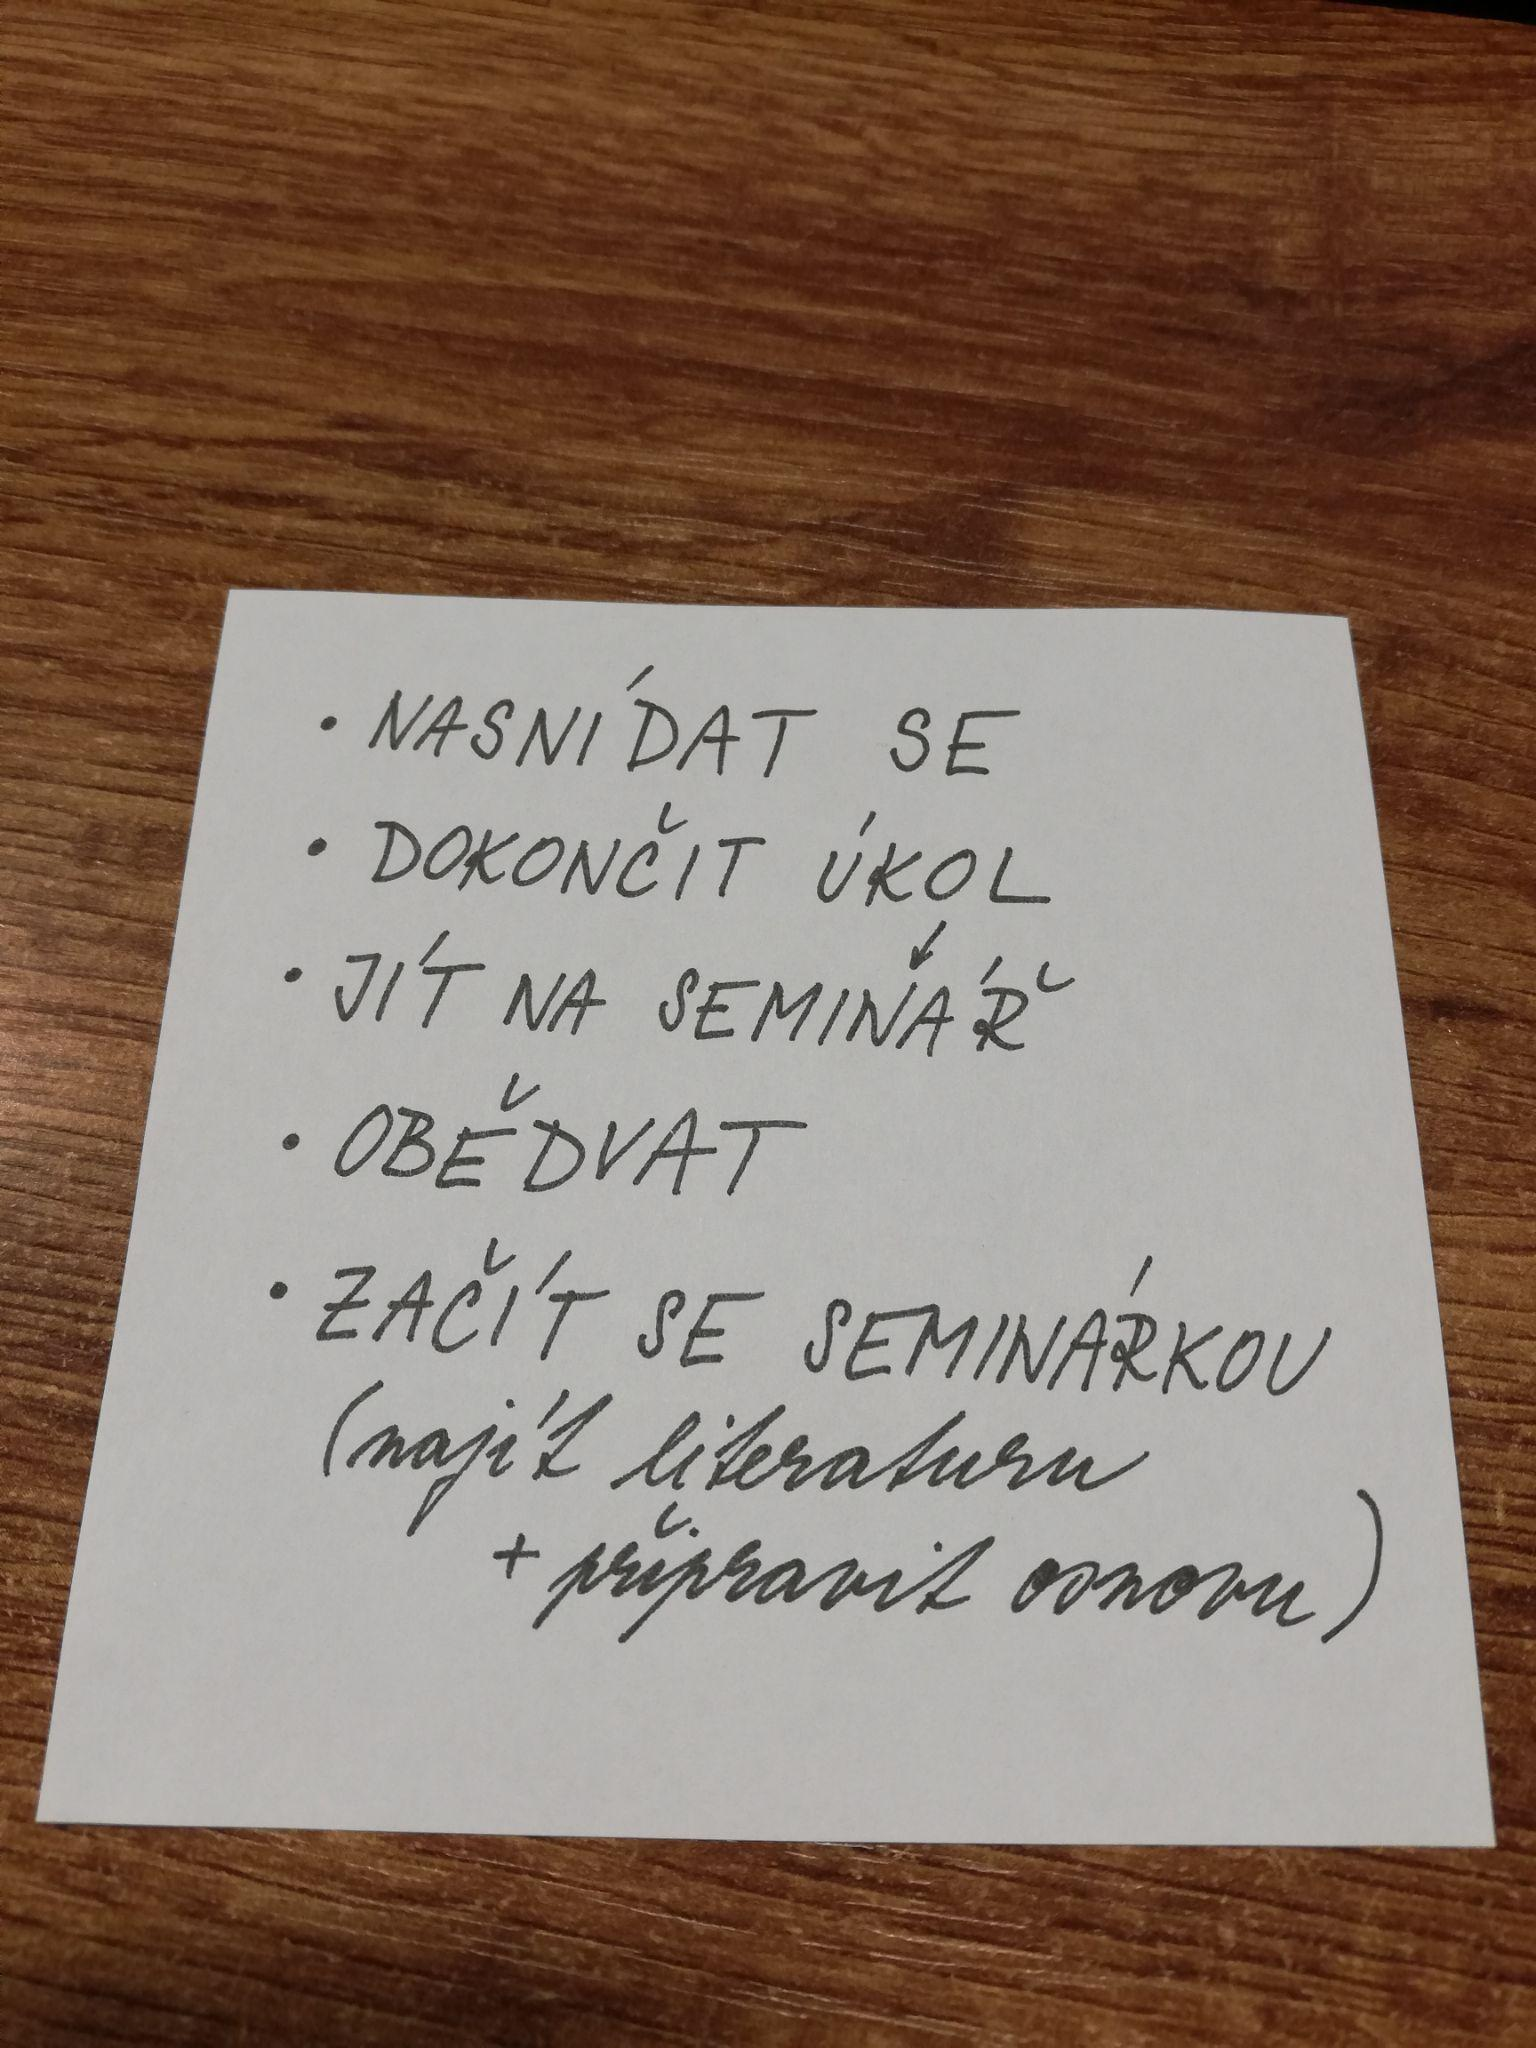 • NASNÍDAT SE
• DOKONČIT ÚKOL
↓
• JÍT NA SEMINÁŘ
• OBĚDVAT
• ZAČÍT SE SEMINÁRKOU
(najít literaturu
+ připravit osnovu)